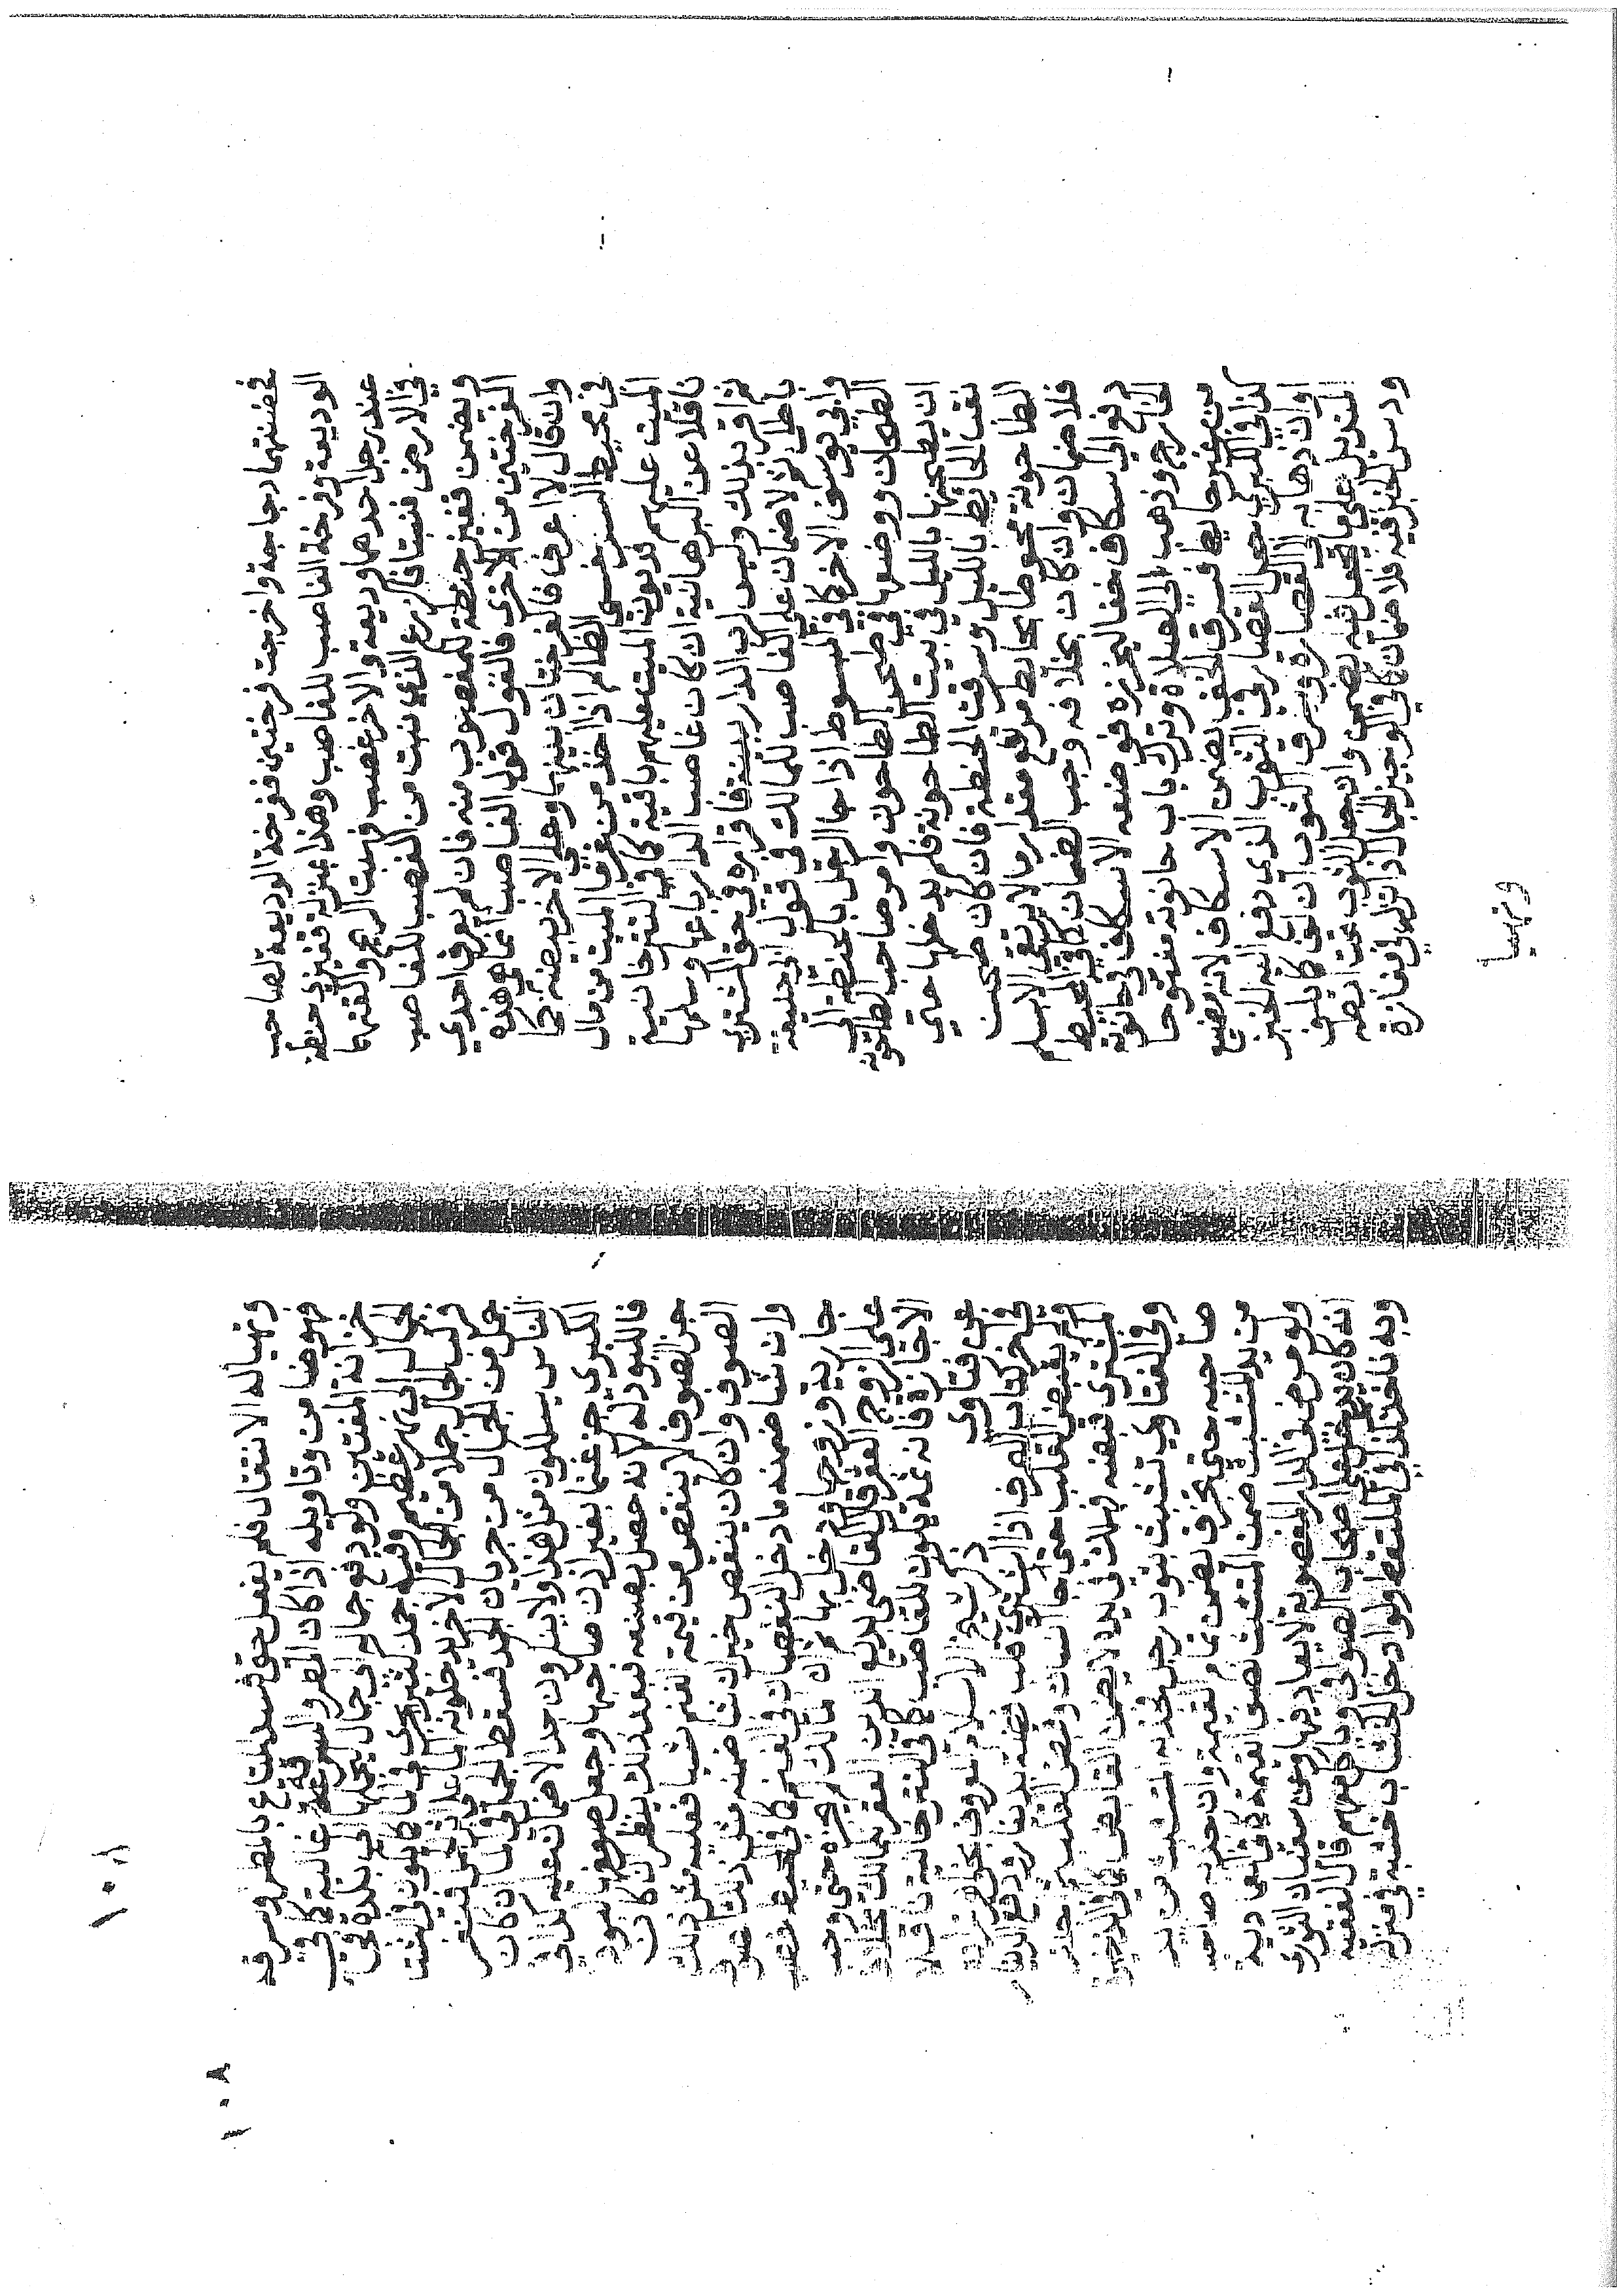 فحضنتهما دجاجة واخرجت فرختين ففرخة الوديعة لصاحب
الوديعة وفرخة الغاصب للغاصب وهذا بمنزلة قفيزي حنطة
عند رجل احدهما وديعة والاخر غصب فهبت الريح والقتهما
في الارض فنبتا فالزرع الذي نبت من الغصب للغاصب
ويضمن قفيز حنطة للمغصوب منه فان لم يعرف احدي
الفرختين من الاخرى فالقول قول الغاصب ايما هو هذه
وان قال لا اعرف فالفرختان بينهما وعلى الاخر بيضة كما
في محيط السرخسي الظالم اذا اخذ من غرما الميت من مال
الميت عليهم فديون الميت عليهم باقية كما في التترخانية
ناقلا عن البرهانية ان كان غاصب الدار باعها وسلمها
ثم اقر بذلك وليس لرب الدار بينة فاقراره في حق المشتري
باطل ثم لا ضمان على الغاصب للمالك في قول ابي حنيفة
وابي يوسف الاخر كما في المبسوط اذا جا الرجل بالحنطة الى
الطحان ووضعها في صحن الطاحون وامر صاحب الطاحونة
ان يطحنها بالليل في بيت الطاحونة فلم يدخلها حتي
نقب الحايط بالليل وسرقت الحنطة فان كان صحن
الطاحونة محوطا بحايط مرتفع مقدار ما لا يرتقى الا بسلم
فلا ضمان وان كان بخلافه وجب الضمان كما في المحيط
دفع الى اسكاف خفا ليخرزه فوضعه الاسكاف في حانوته
فخرج وذهب الى الصلاة وترك باب حانوته مفتوحا
من غير حايط فسرق الخف يضمن الاسكاف لانه تضييع
كذا في الكبرى حمل القصار في الثوب الذي دفع اليه الخبز
اوان ذهابه الى القصارة وسرق الثوب ان لف كما يلف
المنديل على ما يجعل فيه يضمن وان جعل الثوب تحت ابطه
ودس الخبز فيه فلا ضمان كما في الوجيز الحمال اذا نزل في مفازة
وتهيا
١٠٨
١٠٨
وتهيا له الانتقال فلم يفعل حتى فسد المتاع بالمطر وسرقة
فهو ضامن وتاويله اذا كان المطر والسرقة غالبة كما في
خزانة المفتين ولو دفع جماله الى جمال يحملها الى بلدة فجا
الجمال الى نهر عظيم وفيه جمد كثير يجري في الما كما يكون في الشتا
فركب الجمال جملا من الجمال والاخر يدخلونه الما على اثر فتعثر
جمل من الجمال من جريان الجمد فسقط الحمل في الما ان كان
الناس يسلكون مثل هذا ولا ينكرون احد لا ضمان عليه كذا في
الكبرى جز غنما بغير اذن صاحبها وجعل صوفها لبودا
فاللبود له لانه حصل بصنعه فبعد ذلك ينظر ان كان
جز الصوف لا ينقص من قيمة الغنم شيا فعليه مثل ذلك
الصوف وان كان ينقص خير ان شا ضمنه مثل ذلك صوف
وان شا ضمنه ما دخل النقصان في الغنم كما في المحيط غصب
جارية وزوجها ودخل بها ثم ان مالك لم يجزه حتى وجب
على الزوج العقر قال القاضي بديع الدين العقر للمالك بخلاف
الاجازة فانه ثمة يكون للغاصب كما في التترخانية ناقلا
عن فتاوى ذكر شيخ الاسلام المعروف بخواهر زاده
في اخر كتاب الصرف اذا اشترى قلب فضة بدينار ودفع الدينار
ولم يقبض القلب حتى جا انسان القلب
المشتري قبضه فهلك في يده لا يضمن القابض كما في الذخيرة
وفي الفتاوى تشبث بثوب رجل فجذبه المتشبث من يد
صاحبه حتى تخرق يضمن تمام القيمة وان جذبه صاحبه
من يد المتشبث ضمن المتشبث نصف القيمة
ولو مرض في الدار المغصوبة لا يعاد فيها وعن سفيان الثوري
انه كان يدخل على اصحاب الصوافي وياكل معهم قال الفقيه
وبه ناخذ كذا في الملتقط ولو ادخل خشبة في منزله